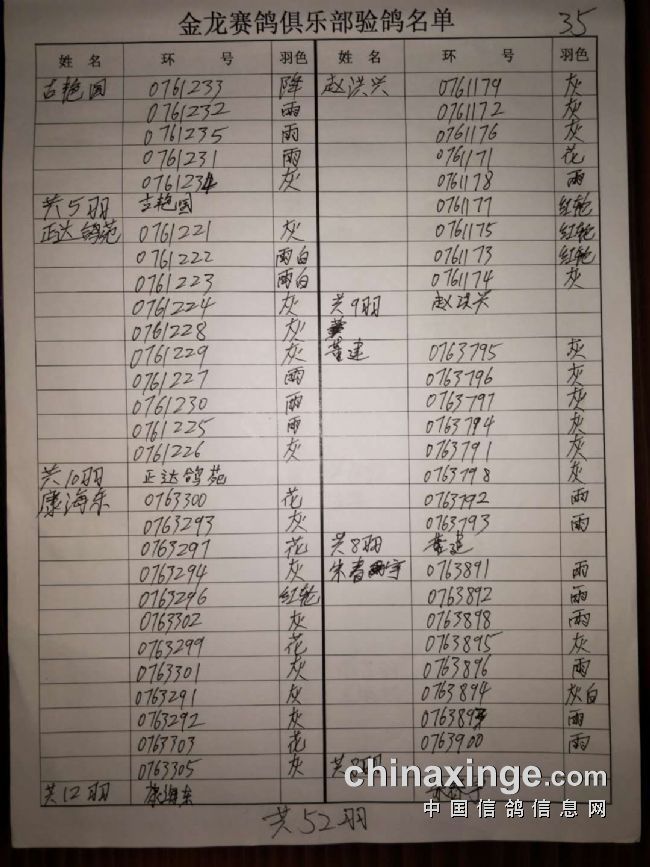 金龙赛鸽俱乐部验鸽名单
35
姓 名 环 号 羽色
吉艳国 0761233 降
0761232 雨
0761235 雨
0761231 雨
0761234 灰
共5羽 吉艳国
正达鸽苑 0761221 灰
0761222 雨白
0761223 雨白
0761224 灰
0761228 灰
0761229 灰
0761227 雨
0761230 雨
0761225 雨
0761226 灰
共10羽 正达鸽苑
康海东 0763300 花
0763293 灰
0763297 花
0763294 灰
0763296 红轮
0763302 灰
0763299 花
0763301 灰
0763291 灰
0763292 灰
0763303 花
0763305 灰
共12羽 康海东
姓 名 环 号 羽色
赵洪兴 0761179 灰
0761172 灰
0761176 灰
0761171 花
0761178 雨
0761177 红轮
0761175 红轮
0761173 红轮
0761174 灰
共9羽 赵洪兴
董建 0763795 灰
0763796 灰
0763797 灰
0763794 灰
0763791 灰
0763798 灰
0763792 雨
0763793 雨
共8羽 董建
宋春宇 0763891 雨
0763892 雨
0763898 雨
0763895 灰
0763896 雨
0763894 灰白
雨
0763900 雨
共8羽
共52羽
chinaxinge.com
中国信鸽信息网